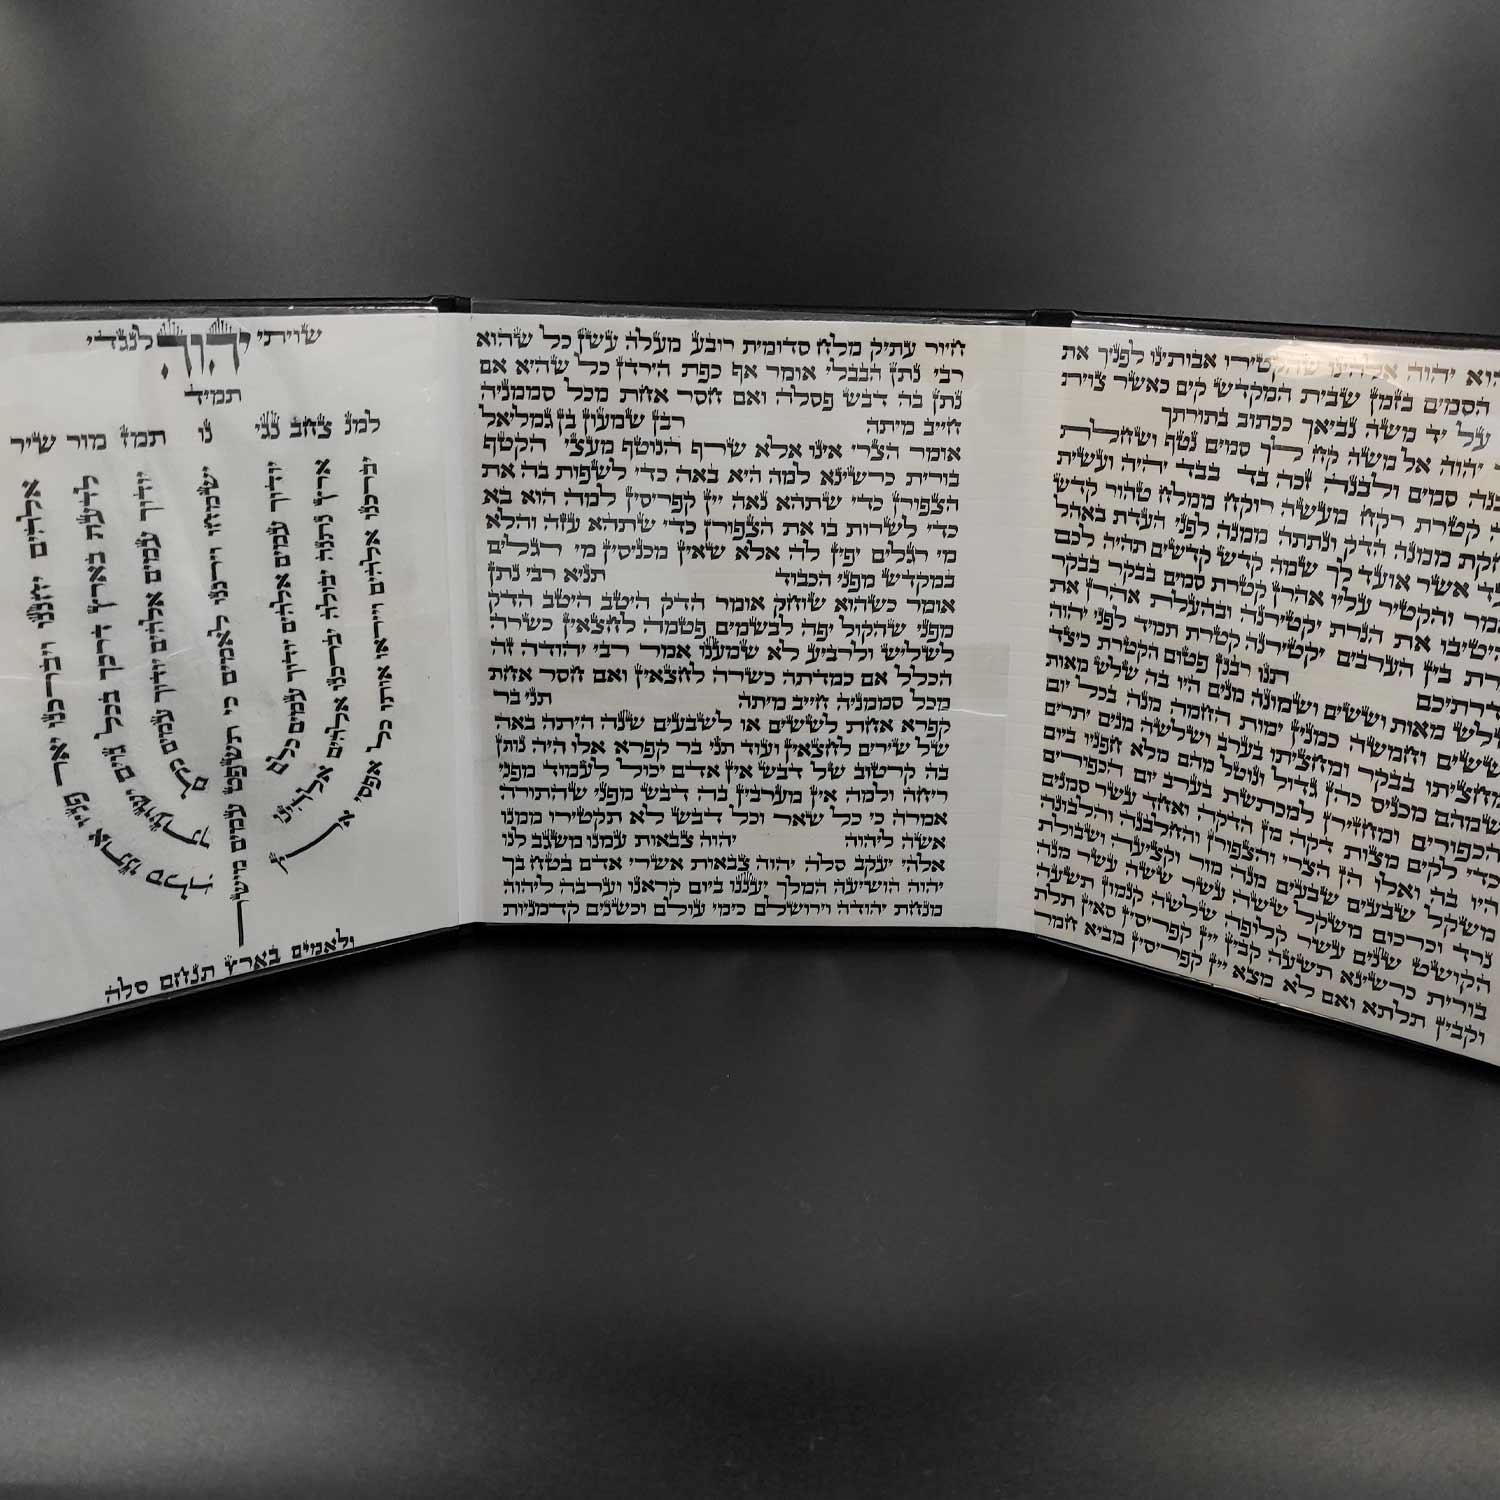 הוא יהוה אלהינו שהקטירו אבותינו לפניך את
הסמים בזמן שבית המקדש קים כאשר צוית
על יד משה נביאך ככתוב בתורתך
יהוה אל משה קח לך סמים נטף ושחלת
סמים ולבנה זכה בד בבד יהיה ועשית
קטרת רקח מעשה רוקח ממולח טהור קדש
ממנה הדק ונתתה ממנה לפני העדת באהל
אשר אועד לך שמה קדש קדשים תהיה לכם
והקטיר עליו אהרן קטרת סמים בבקר בבקר
את הנרת יקטירנה ובהעלת אהרן את
בין הערבים יקטירנה קטרת תמיד לפני יהוה
לדרתיכם תנו רבנן פטום הקטרת כיצד
שלש מאות וששים ושמונה מנים היו בה שלש מאות
ששים וחמשה כמנין ימות החמה מנה בכל יום
מחציתו בבקר ומחציתו בערב ושלשה מנים יתרים
שמהם מכניס כהן גדול ונוטל מהם מלא חפניו ביום
הכפורים ומחזירן למכתשת בערב יום הכפורים
כדי לקים מצות דקה מן הדקה ואחד עשר סמנים
היו בה ואלו הן הצרי והצפורן והחלבנה והלבונה
משקל שבעים שבעים מנה מור וקציעה ושבולת
נרד וכרכום משקל ששה עשר ששה עשר מנה
הקושט שנים עשר קלופה שלשה קנמון תשעה
בורית כרשינא תשעה קבין יין קפריסין סאין תלת
וקבין תלתא ואם לא מצא יין קפריסין מביא חמר
חיור עתיק מלח סדומית רובע מעלה עשן כל שהוא
רבי נתן הבבלי אומר אף כפת הירדן כל שהיא אם
נתן בה דבש פסלה ואם חסר אחת מכל סממניה
חייב מיתה רבן שמעון בן גמליאל
אומר הצרי אינו אלא שרף הנוטף מעצי הקטף
בורית כרשינא למה היא באה כדי לשפות בה את
הצפורן כדי שתהא נאה יין קפריסין למה הוא בא
כדי לשרות בו את הצפורן כדי שתהא עזה והלא
מי רגלים יפין לה אלא שאין מכניסין מי רגלים
במקדש מפני הכבוד תניא רבי נתן
אומר כשהוא שוחק אומר הדק היטב היטב הדק
מפני שהקול יפה לבשמים פטמה לחצאין כשרה
לשליש ולרביע לא שמענו אמר רבי יהודה זה
הכלל אם כמדתה כשרה לחצאין ואם חסר אחת
מכל סממניה חייב מיתה תני בר
קפרא אחת לששים או לשבעים שנה היתה באה
של שירים לחצאין ועוד תני בר קפרא אלו היה נותן
בה קרטוב של דבש אין אדם יכול לעמוד מפני
ריחה ולמה אין מערבין בה דבש מפני שהתורה
אמרה כי כל שאר וכל דבש לא תקטירו ממנו
אשה ליהוה יהוה צבאות עמנו משגב לנו
אלהי יעקב סלה יהוה צבאות אשרי אדם בטח בך
יהוה הושיעה המלך יעננו ביום קראנו וערבה ליהוה
מנחת יהודה וירושלם כימי עולם וכשנים קדמניות
שויתי יהוה לנגדי
תמיד
למנ צחב נגי נו תמז מור שיר
אלהים יחננו ויברכנו יאר פניו אתנו סלה
לדעת בארץ דרכך בכל גוים ישועתך
יודוך עמים אלהים יודוך עמים כלם
ישמחו וירננו לאמים כי תשפט עמים מישור
ולאמים בארץ תנחם סלה
יודוך עמים אלהים יודוך עמים כלם
ארץ נתנה יבולה יברכנו אלהים אלהינו
יברכנו אלהים וייראו אותו כל אפסי ארץ